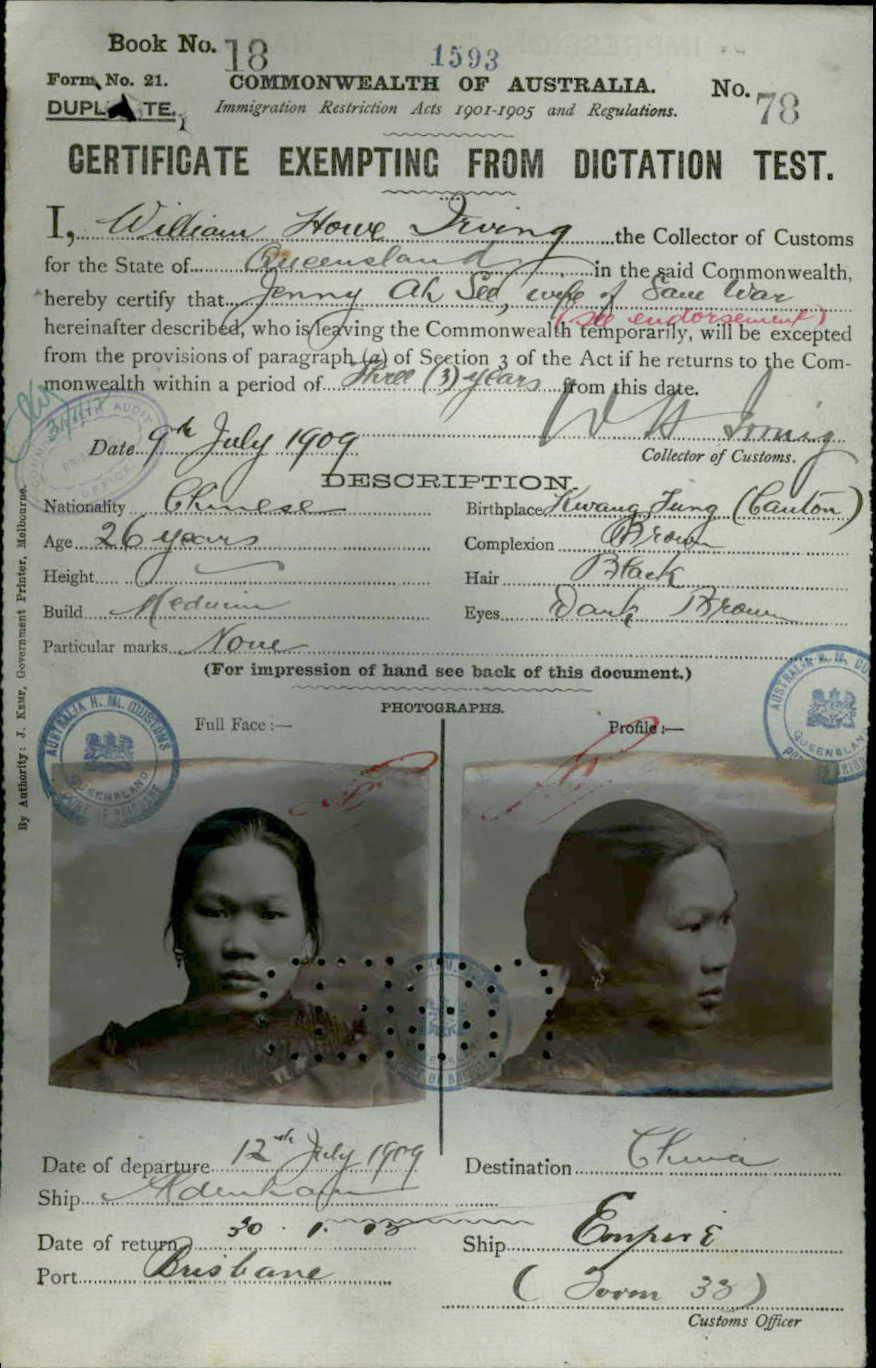 Book No. 18
1593
Form No. 21.
COMMONWEALTH OF AUSTRALIA.
No. 78
DUPL TE.
Immigration Restriction Acts 1901-1905 and Regulations.
CERTIFICATE EXEMPTING FROM DICTATION TEST.
I, William Howe Irving the Collector of Customs
for the State of Queensland in the said Commonwealth,
hereby certify that Jenny Ah See, wife of Sam War
(see endorsement)
hereinafter described, who is leaving the Commonwealth temporarily, will be excepted
from the provisions of paragraph (a) of Section 3 of the Act if he returns to the Com-
monwealth within a period of Three (3) years from this date.
W H Irving
Date 9th July 1909
Collector of Customs.
DESCRIPTION.
Nationality Chinese
Birthplace Kwang Tung (Canton)
Age 26 years
Complexion Brown
Height
Hair Black
Build Medium
Eyes Dark Brown
Particular marks None
(For impression of hand see back of this document.)
PHOTOGRAPHS.
Full Face :—
Profile :—
AUSTRALIA H. M. CUSTOMS
QUEENSLAND
PORT OF BRISBANE
By Authority: J. KEMP, Government Printer, Melbourne.
Date of departure 12th July 1909
Destination China
Ship Aldenham
Date of return 30.1.
Ship Empire
Port Brisbane
(Form 33)
Customs Officer